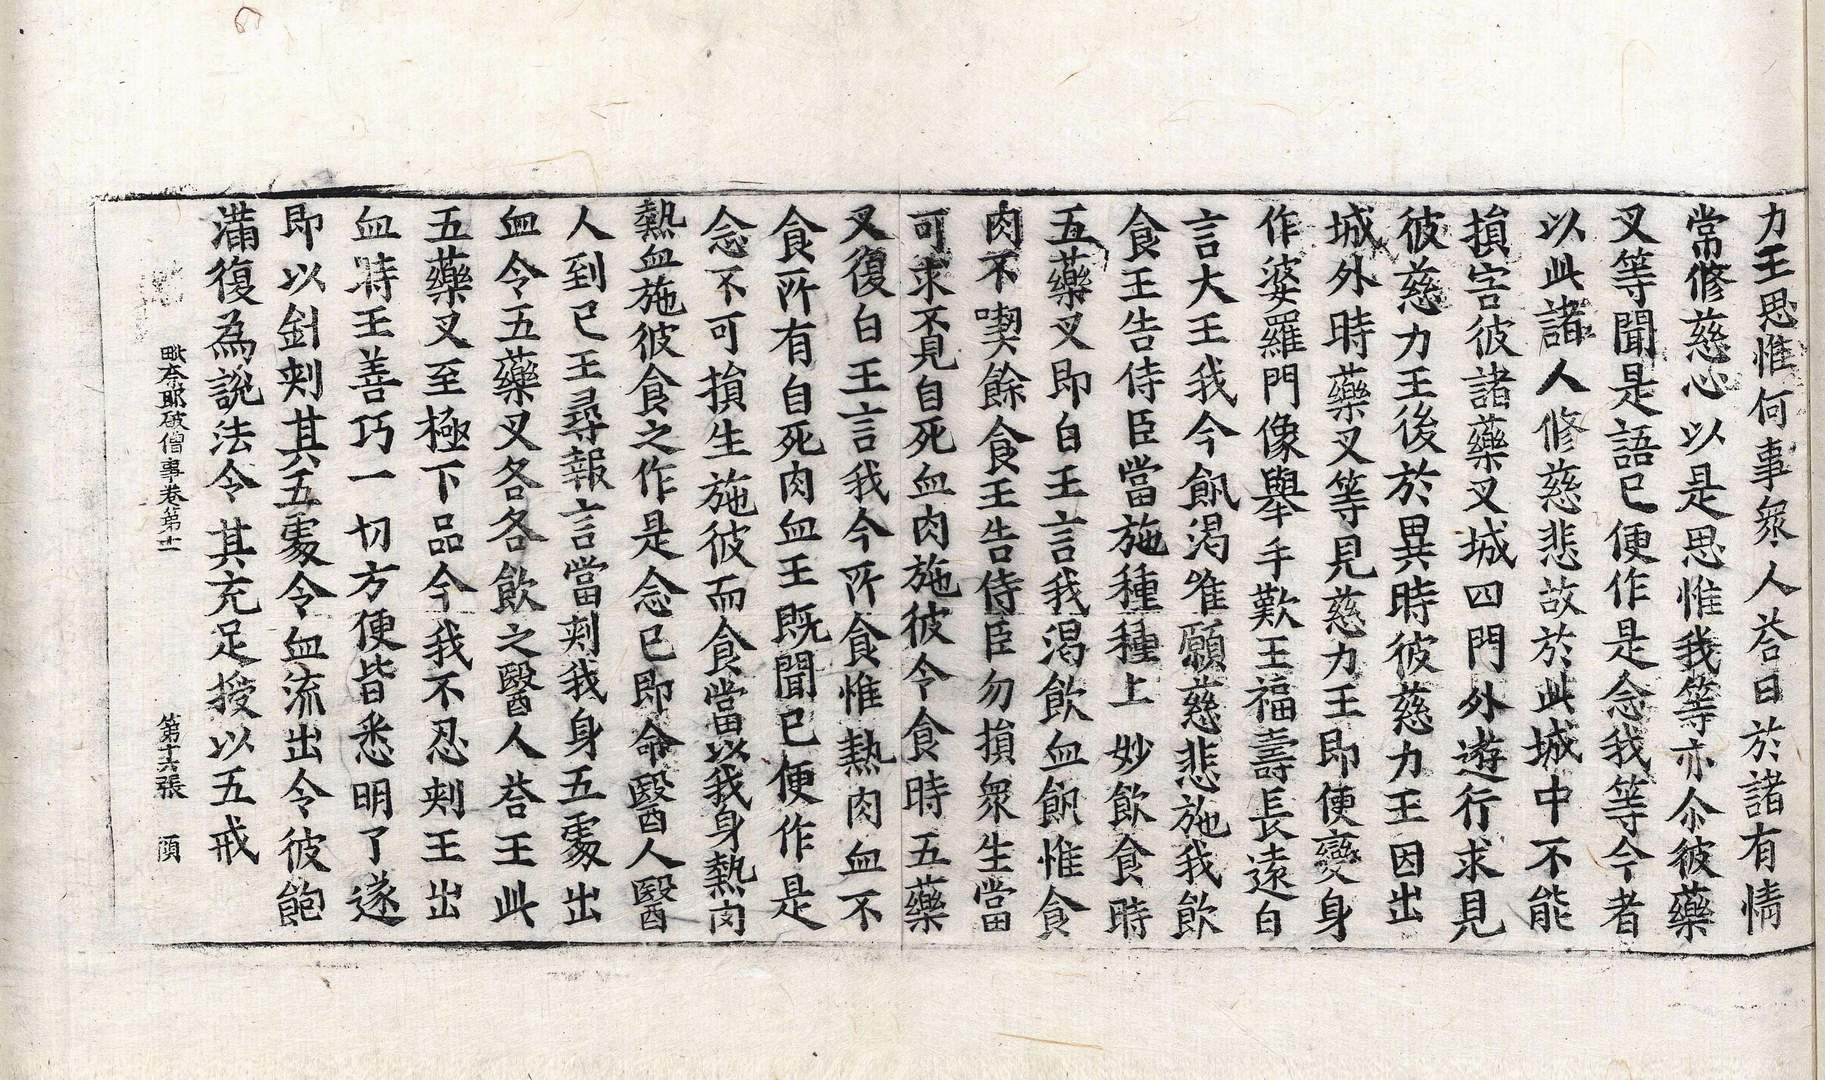 力王思惟何事衆人荅曰於諸有情
常修慈心以是思惟我等亦尒彼藥
叉等聞是語已便作是念我等今者
以此諸人修慈悲故於此城中不能
損害彼諸藥叉城四門外遊行求見
彼慈力王後於異時彼慈力王因出
城外時藥叉等見慈力王即便變身
作婆羅門像舉手歎王福壽長遠白
言大王我今飢渴唯願慈悲施我飲
食王告侍臣當施種種上妙飲食時
五藥叉即白王言我渴飲血飢惟食
肉不喫餘食王告侍臣勿損衆生當
可求覓自死血肉施彼令食時五藥
叉復白王言我今所食惟熱肉血不
食所有自死肉血王既聞已便作是
念不可損生施彼而食當以我身熱肉
熱血施彼食之作是念已即命醫人醫
人到已王尋報言當刾我身五處出
血令五藥叉各各飲之醫人荅王此
五藥叉至極下品今我不忍刾王出
血時王善巧一切方便皆悉明了遂
即以針刾其五處令血流出令彼飽
滿復為說法令其充足授以五戒
毗奈耶破僧事卷第十一　第十六張　湏